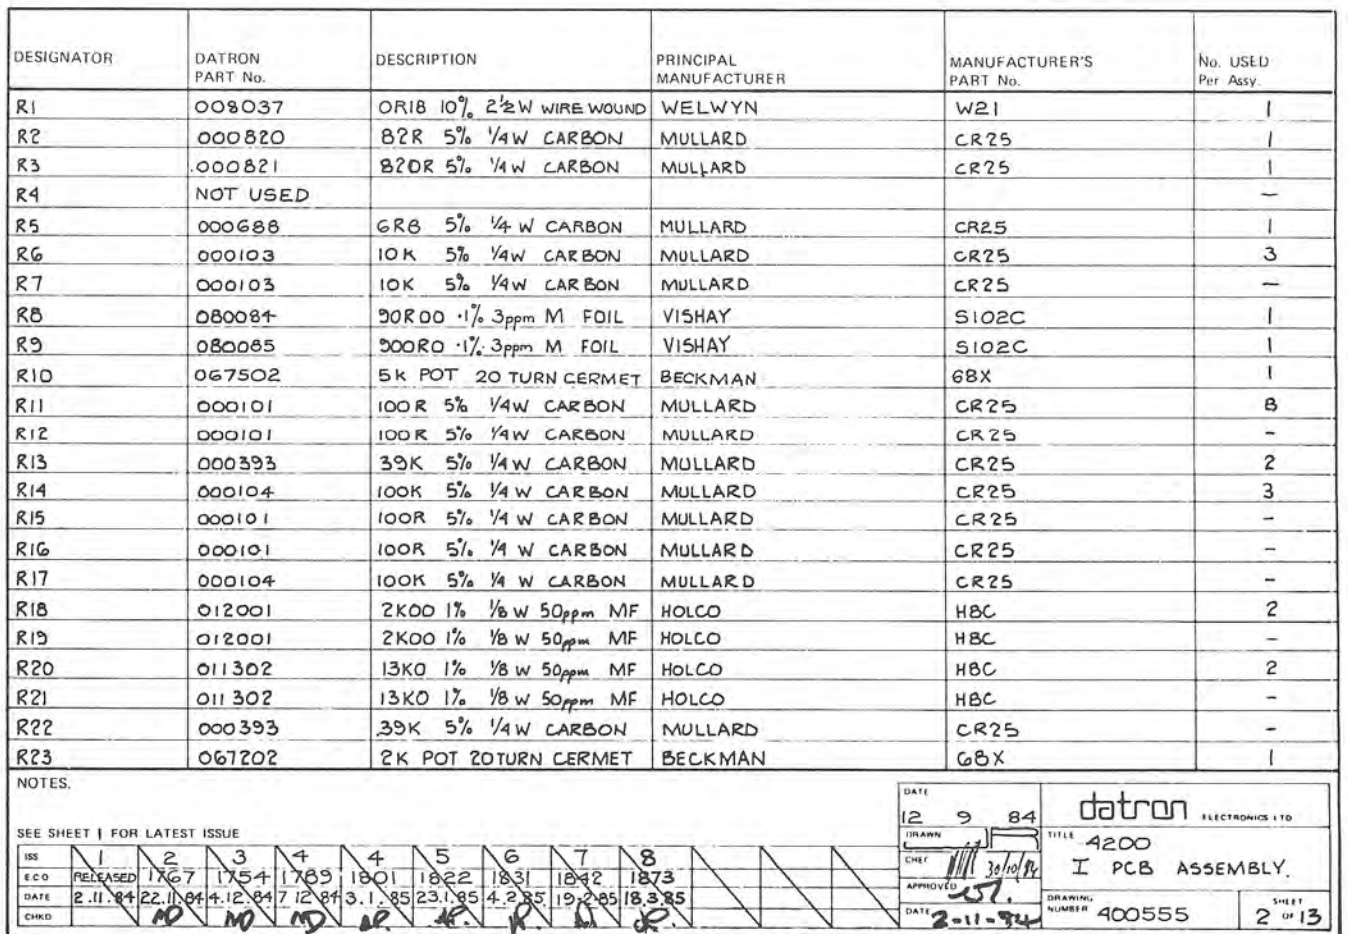 DESIGNATOR DATRON PART No. DESCRIPTION PRINCIPAL MANUFACTURER MANUFACTURER'S PART No. No. USED Per Assy.
R1 008037 0R18 10% 2½W WIRE WOUND WELWYN W21 1
R2 000820 82R 5% ¼W CARBON MULLARD CR25 1
R3 000821 820R 5% ¼W CARBON MULLARD CR25 1
R4 NOT USED —
R5 000688 6R8 5% ¼W CARBON MULLARD CR25 1
R6 000103 10K 5% ¼W CARBON MULLARD CR25 3
R7 000103 10K 5% ¼W CARBON MULLARD CR25 —
R8 080084 90R00 ·1% 3ppm M FOIL VISHAY S102C 1
R9 080085 900R0 ·1% 3ppm M FOIL VISHAY S102C 1
R10 067502 5K POT 20 TURN CERMET BECKMAN 68X 1
R11 000101 100R 5% ¼W CARBON MULLARD CR25 8
R12 000101 100R 5% ¼W CARBON MULLARD CR25 -
R13 000393 39K 5% ¼W CARBON MULLARD CR25 2
R14 000104 100K 5% ¼W CARBON MULLARD CR25 3
R15 000101 100R 5% ¼W CARBON MULLARD CR25 -
R16 000101 100R 5% ¼W CARBON MULLARD CR25 -
R17 000104 100K 5% ¼W CARBON MULLARD CR25 -
R18 012001 2K00 1% ⅛W 50ppm MF HOLCO H8C 2
R19 012001 2K00 1% ⅛W 50ppm MF HOLCO H8C -
R20 011302 13K0 1% ⅛W 50ppm MF HOLCO H8C 2
R21 011302 13K0 1% ⅛W 50ppm MF HOLCO H8C -
R22 000393 39K 5% ¼W CARBON MULLARD CR25 -
R23 067202 2K POT 20TURN CERMET BECKMAN 68X 1
NOTES.
SEE SHEET 1 FOR LATEST ISSUE
ISS 1 2 3 4 4 5 6 7 8
E.C.O RELEASED 1767 1754 1789 1801 1822 1831 1842 1873
DATE 2.11.84 22.11.84 4.12.84 7 12 84 3.1.85 23.1.85 4.2.85 19-2-85 18.3.85
CHKD
DATE
12 9 84
DRAWN
CHEF 30/10/84
APPROVED
DATE 2-11-84
datron ELECTRONICS LTD
TITLE 4200
I PCB ASSEMBLY.
DRAWING NUMBER 400555
SHEET 2 OF 13